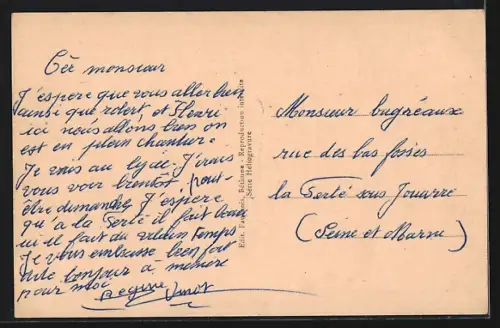 Cée monsieur
J'espere que vous aller bien
ainsi que robert et Henri
ici nous allons bien on
est en plein chantier.
Je vais au lycée. J'irais
vous voir bientôt, peut-
être dimanche J'espere
qu'a la Ferté il fait beau
ici il fait du vilain temps
Je vous embrasse bien fort
dite bonjour a mémère
pour moi
Regine
Edit. Béthune - Reproduction interdite
Série Héliogravure
Monsieur bugréaux
rue des bas fossés
la Ferté sous Jouarre
(Seine et Marne)